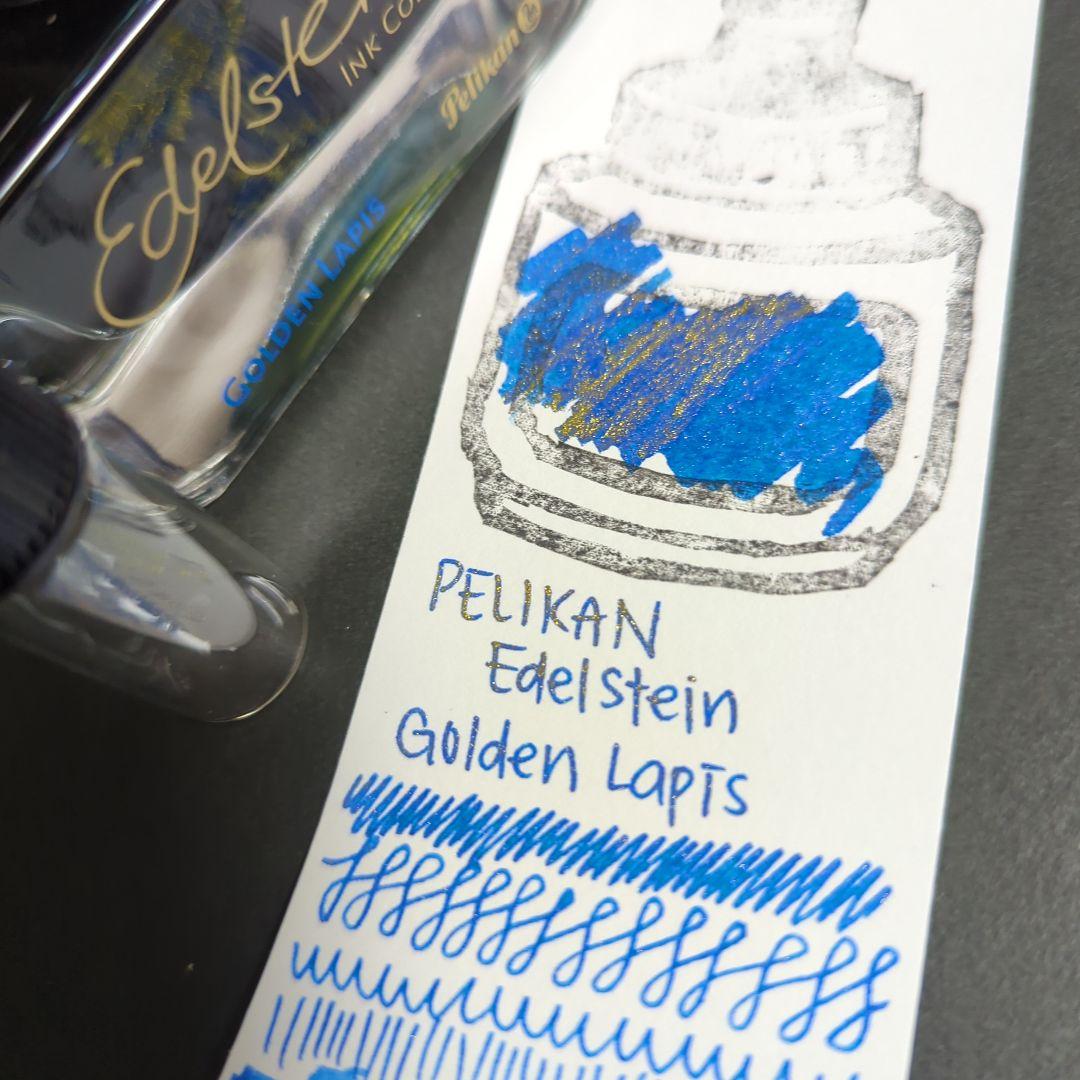 Edelste
INK CO
Pelikan
GOLDEN LAPIS
PELIKAN
Edelstein
Golden Lapis